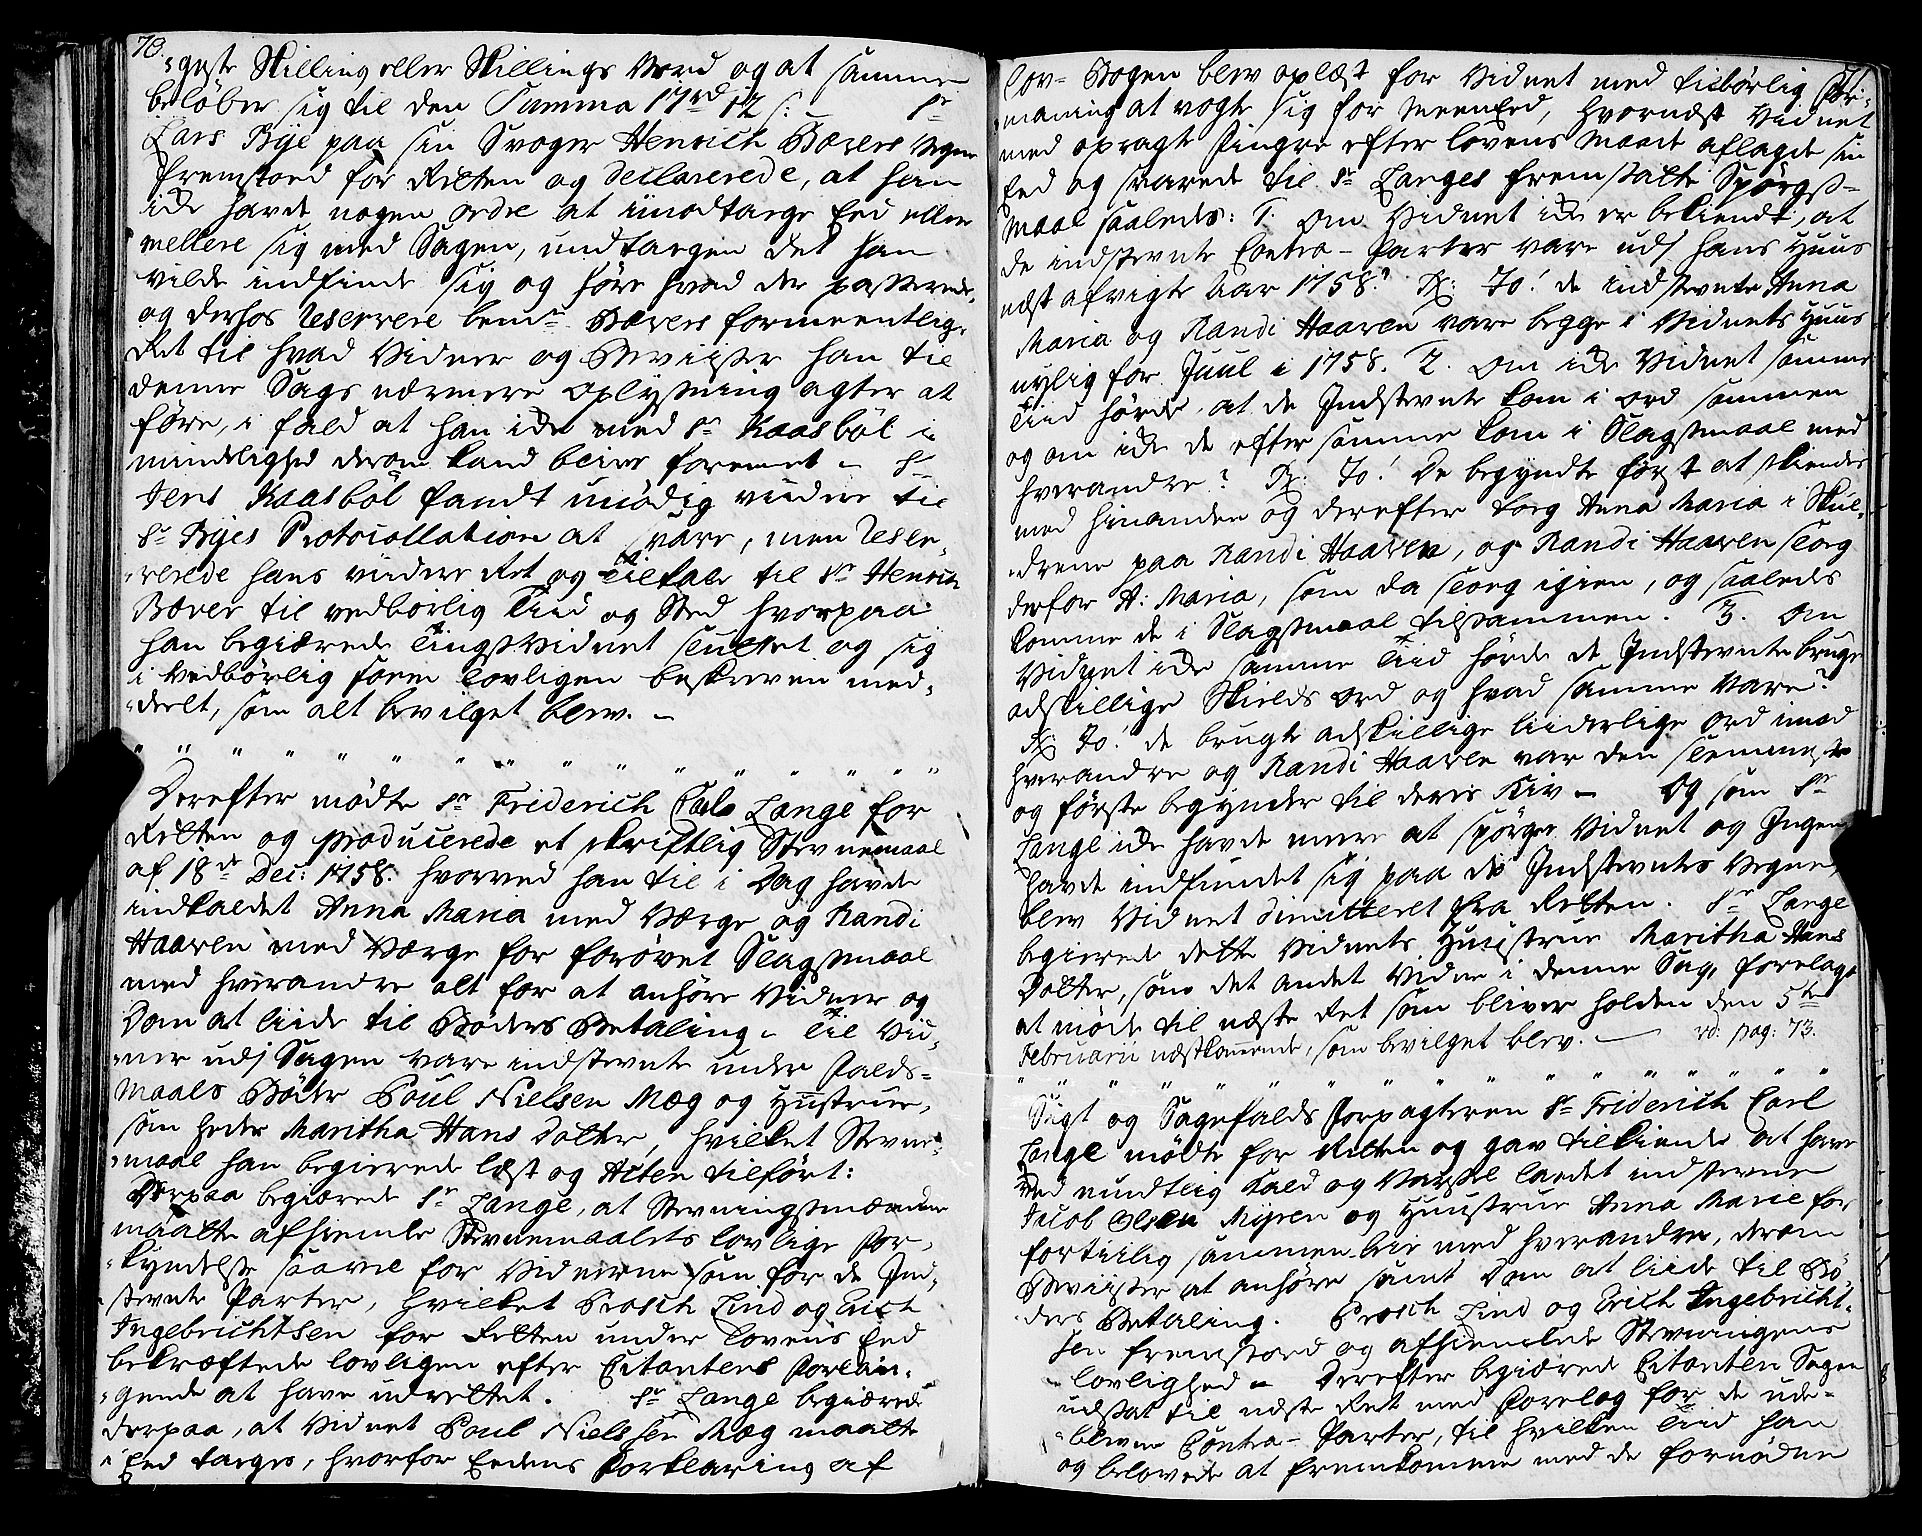 70.
-geste Skilling eller Skillings Værd og at samme
beløber sig til den Summa 17rd 12 s: - Sr
Lars Bye paa sin Svoger Henrich Bævers Vegne
fremstoed for Retten og declarerede, at han
icke havde nogen ordre at imodtage Eed eller
mellere sig med Sagen, undtagen det han
vilde indfinde sig og høre hvad der passerede,
og derhos reservere bemte Bævers formeentlig-
Ret til hvad Vidner og Beviiser han til
denne Sags nærmere Oplysning agter at
føre, i fald at han icke med Sr Kaasbøl i
mindelighed derom kand blive foreenet - Sr
Jens Kaasbøl fandt unødig viidere til
Sr Byes Protocollation at svare, men reser-
verede hans viidere Ret og Tiltale til Sr Henrich
Bæver til vedbørlig Tiid og Sted hvorpaa
han begiærede Tingsvidnet sluttet og sig
i vedbørlig form lovligen beskreven med-
deelt, som alt bevilget blev. -
Derefter mødte Sr Friderich Carl Lange for
Retten og producerede et skriftlig Stevnemaal
af 18de Dec: 1758. hvorved han til i Dag havde
indkaldet Anna Maria med Værge og Randi
Haaven med Værge for forøvet Slagsmaal
med hverandre alt for at anhøre Vidner og
Dom at liide til Bøders Betaling - Til Vid-
ner udj Sagen vare indstevnte under Falds-
Maals Bøder Poul Nielsen Mæg og Hustrue,
som heder Maritha Hans Datter, hvilket Stevne-
maal han begierede læst og Acten tilført:
Derpaa begiærede Sr Lange, at Stevningsmændene
maatte afhiemle Stevnemaalets lovlige For-
kyndelse saavel for Vidnerne som for de Ind-
stevnte Parter, hvilket Brosch Lind og Erich
Ingebrichtsen for Retten under Lovens Eed
bekræftede lovligen efter Citantens Forlan-
gende at have udrettet. Sr Lange begiærede
derpaa, at Vidnet Poul Nielssen Mæg maatte
i Eed tages, hvorfor Eedens Forklaring af
Lov-Bogen blev oplæst for Vidnet med tilbørlig For-
maning at vogte sig for MeenEed, hvornæst Vidnet
med opragte Fingre efter Lovens Maade aflagde sin
Eed og svarede til Sr Langes fremstalte Spørgs-
maal saaledes: 1. Om Vidnet icke er bekiendt, at
de indstevnte Contra-Parter vare udj hans Huus
næst afvigte Aar 1758? Rx: Jo! de indstevnte Anna
Maria og Randi Haaven vare begge i Vidnets Huus
nylig for Juul i 1758. 2. Om icke Vidnet samme
Tiid hørde, at de Indstevnte kom i ord sammen
og om icke de efter samme kom i Slagsmaal med
hverandre? Rx: Jo! De begyndte først at skiende
med hinanden og derefter tog Anna Maria i Skul-
drene paa Randi Haaven, og Randi Haaven slog
derfor A: Maria, som da slog igien, og saaledes
komme de i Slagsmaal tilsammen. 3. Om
Vidnet icke samme Tiid hørde de Indstevnte bruge
adskillige Skields ord og hvad samme vare?
Rx: Jo! de brugte adskillige liiderlige ord imod
hverandre og Randi Haaven var den slemmeste
og første begynder til deres Kiv - Og som Sr
Lange icke havde mere at spørge Vidnet og Ingen
havde indfundet sig paa de Indstevntes Vegne,
blev Vidnet dimitteret fra Retten. Sr Lange
begierede dette Vidnets Huustrue Maritha Hans
Datter, som det andet Vidne i denne Sag, forelagt
at møde til næste Ret som bliver holden den 5te
Februarii næstkommende, som bevilget blev. - vd. pag: 73.
Sigt og Sagefalds Forpagteren Sr Friderich Carl
Lange mødte for Retten og gav tilkiende at have
ved mundtlig Kald og Varsel ladet indstevne
Jacob Olsen Myren og Huustrue Anna Marie for
fortiilig sammenleie med hverandre, derom
Beviiser at anhøre samt Dom at liide til Bø-
ders Betaling. Brosch Lind og Erich Ingebricht-
sen fremstoed og afhiemlede Stevningens
lovlighed - Derefter begiærede Citanten Sagen
udsat til næste Ret med Forelæg for de ude-
blevne Contra-Parter, til hvilken Tiid han
og belovede at fremkomme med de fornødne